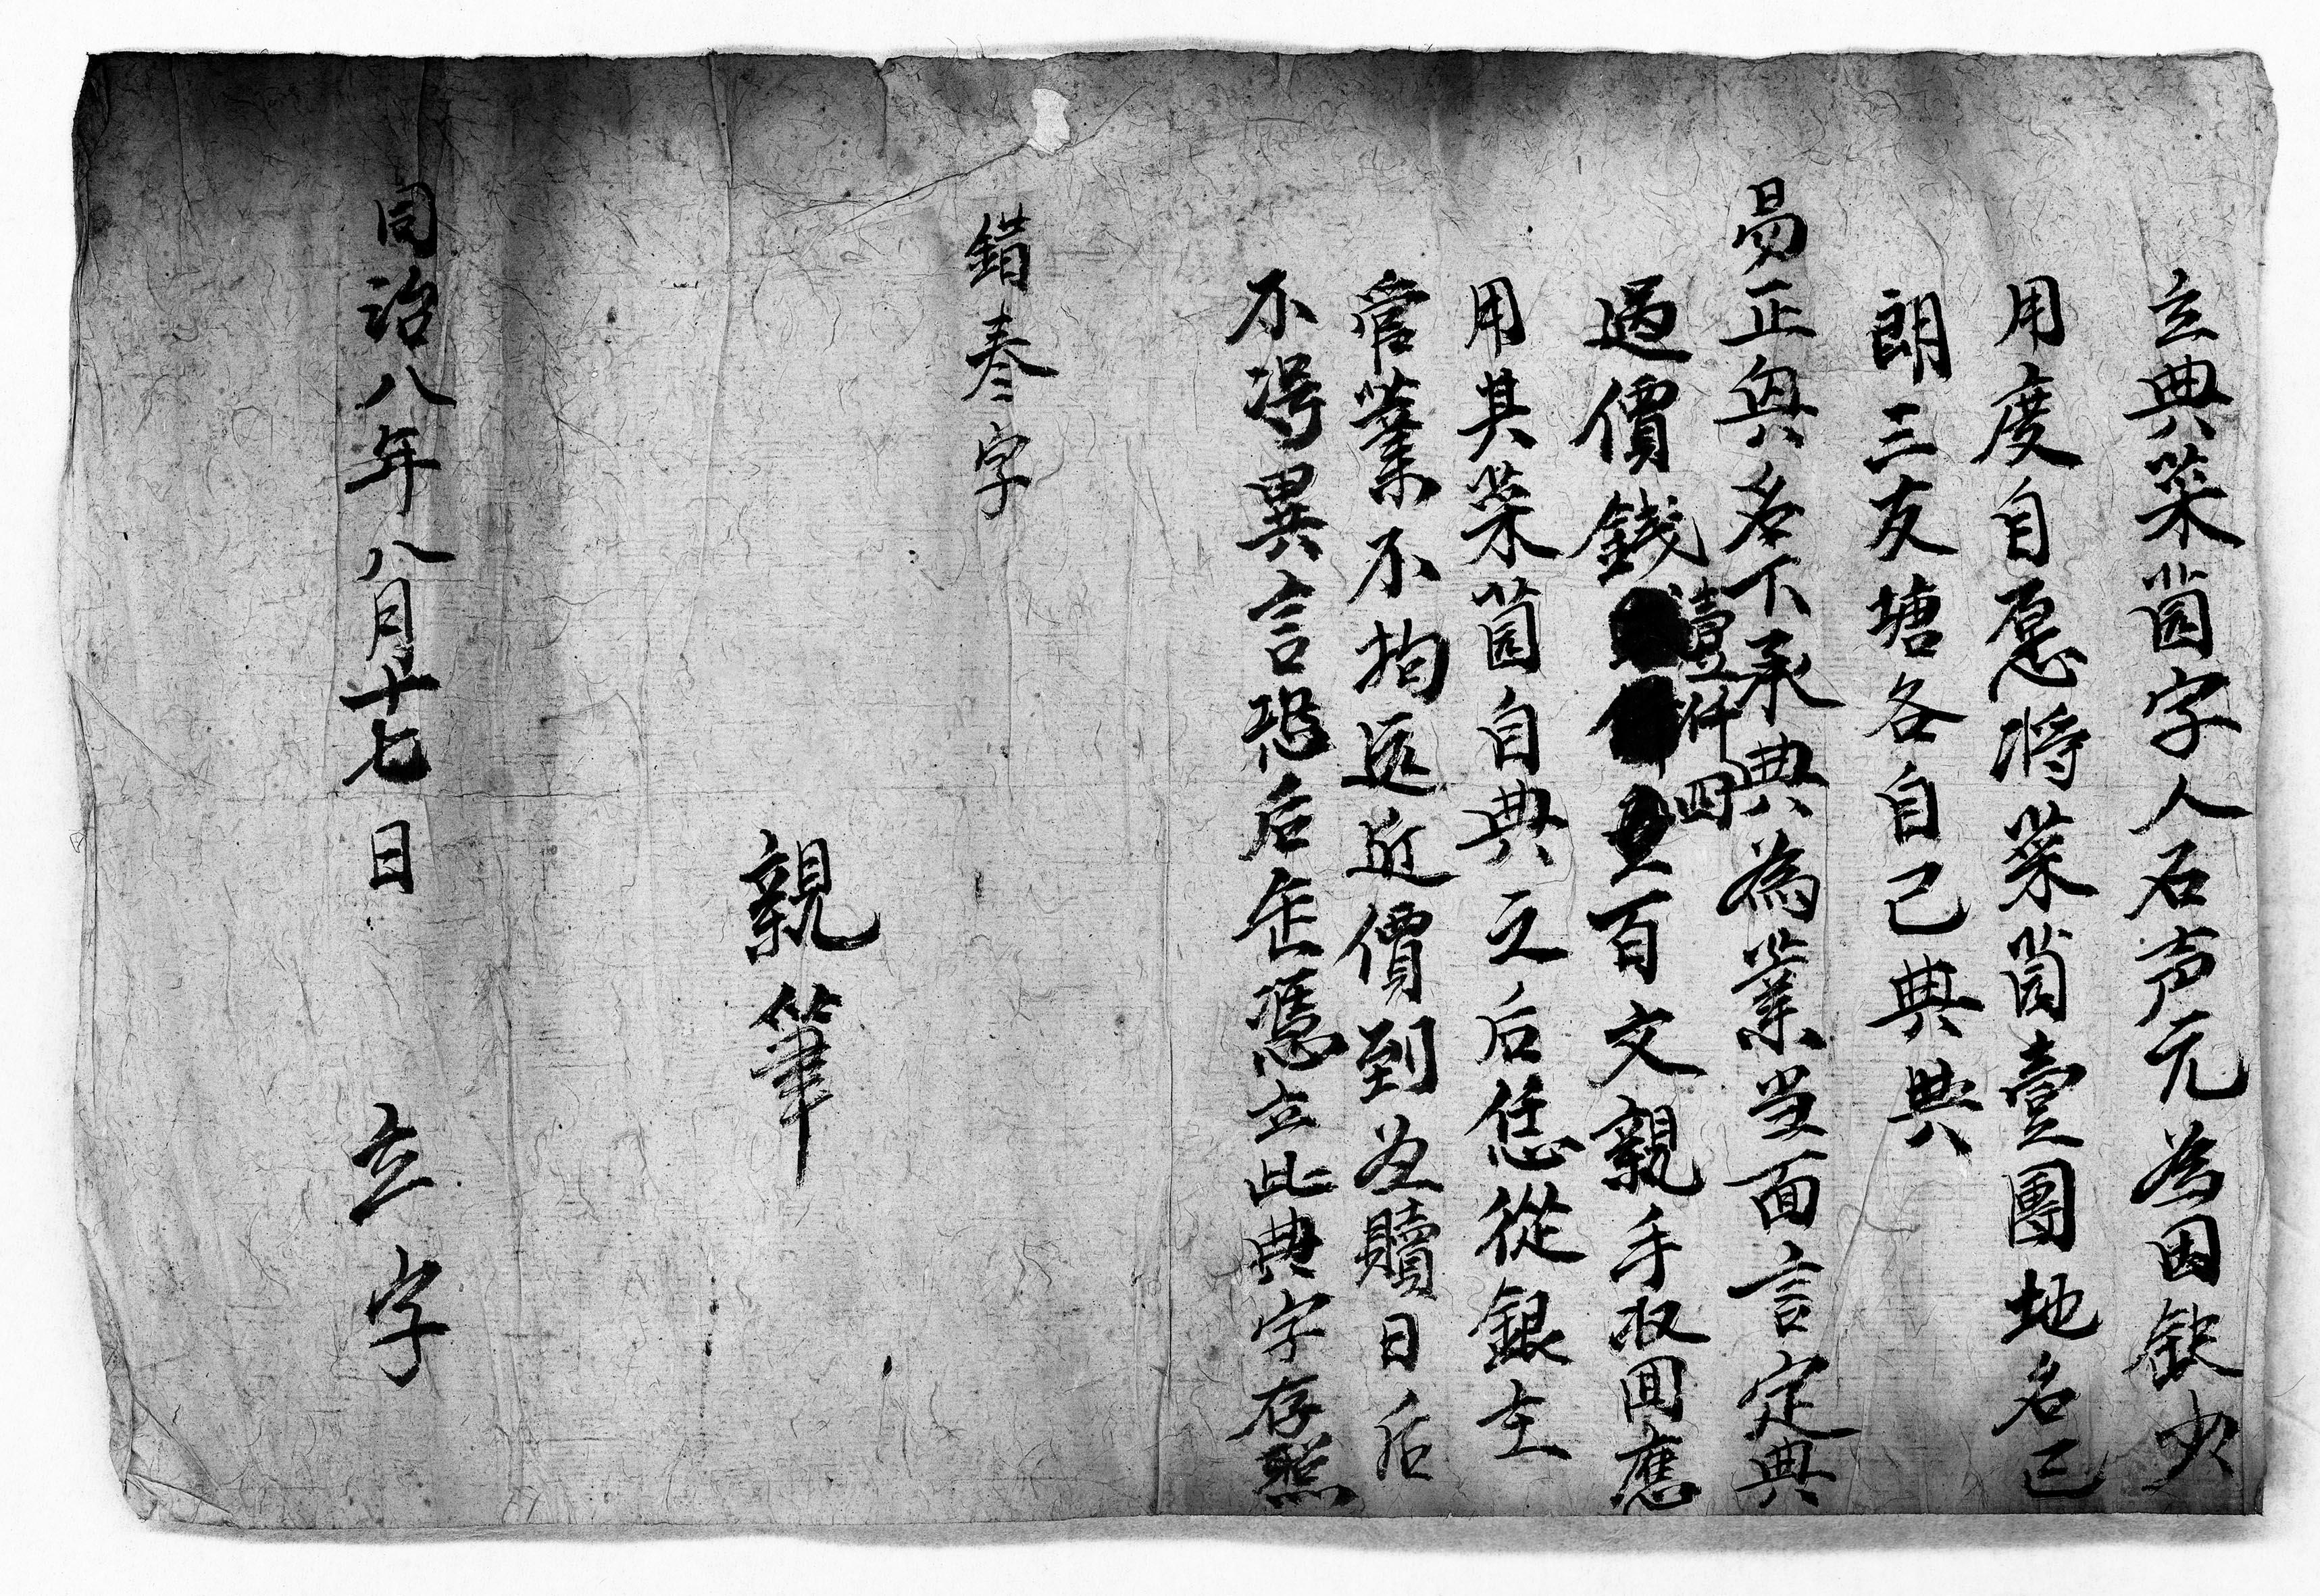 立典菜茵字人石声元為因缺少
用度自愿將菜茵壹團地名己
朗三友塘各自己典典
易正與名下承典為業当面言定典
過價錢壹仟四百文親手收囬應
用其菜茵自典之后恁從銀主
管業不拘远近價到並贖日后
不淂異言恐后無憑立此典字存照
錯叁字
親筆
同治八年八月十七日立字